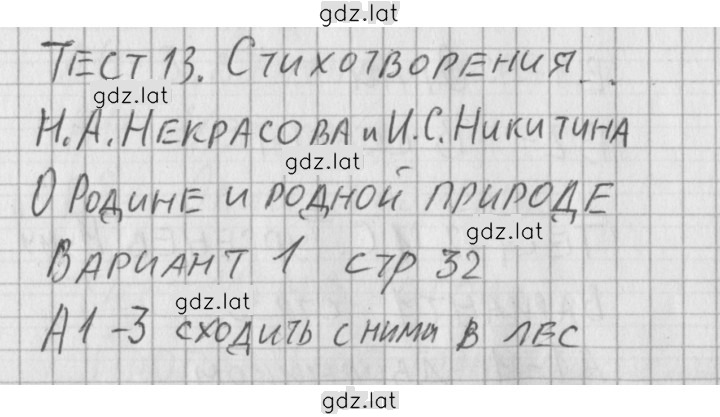 gdz.lat
Тест 13. Стихотворения
gdz.lat
Н.А. Некрасова и И.С. Никитина
gdz.lat
О Родине и родной природе
gdz.lat
Вариант 1 стр 32
gdz.lat
А1-3 сходить с ними в лес
gdz.lat